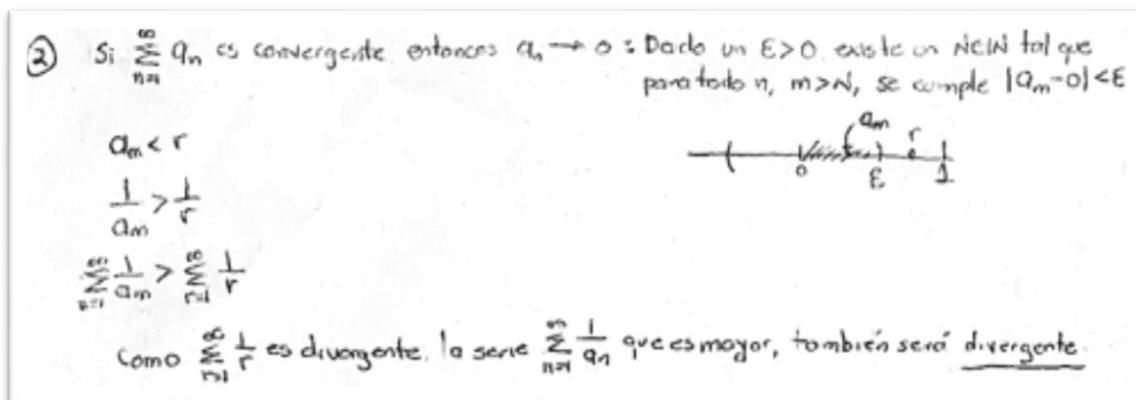 ② Si ∞ Σ n=1 an es convergente entonces an → 0 : Dado un ε>0 existe un N∈ℕ tal que
para todo n, m>N, se cumple |am-0|<ε
am < r
1/am > 1/r
∞ Σ n=1 1/am > ∞ Σ r=1 1/r
am r
0 ε 1
Como ∞ Σ r=1 1/r es divergente, la serie ∞ Σ n=1 1/an que es mayor, también será divergente.